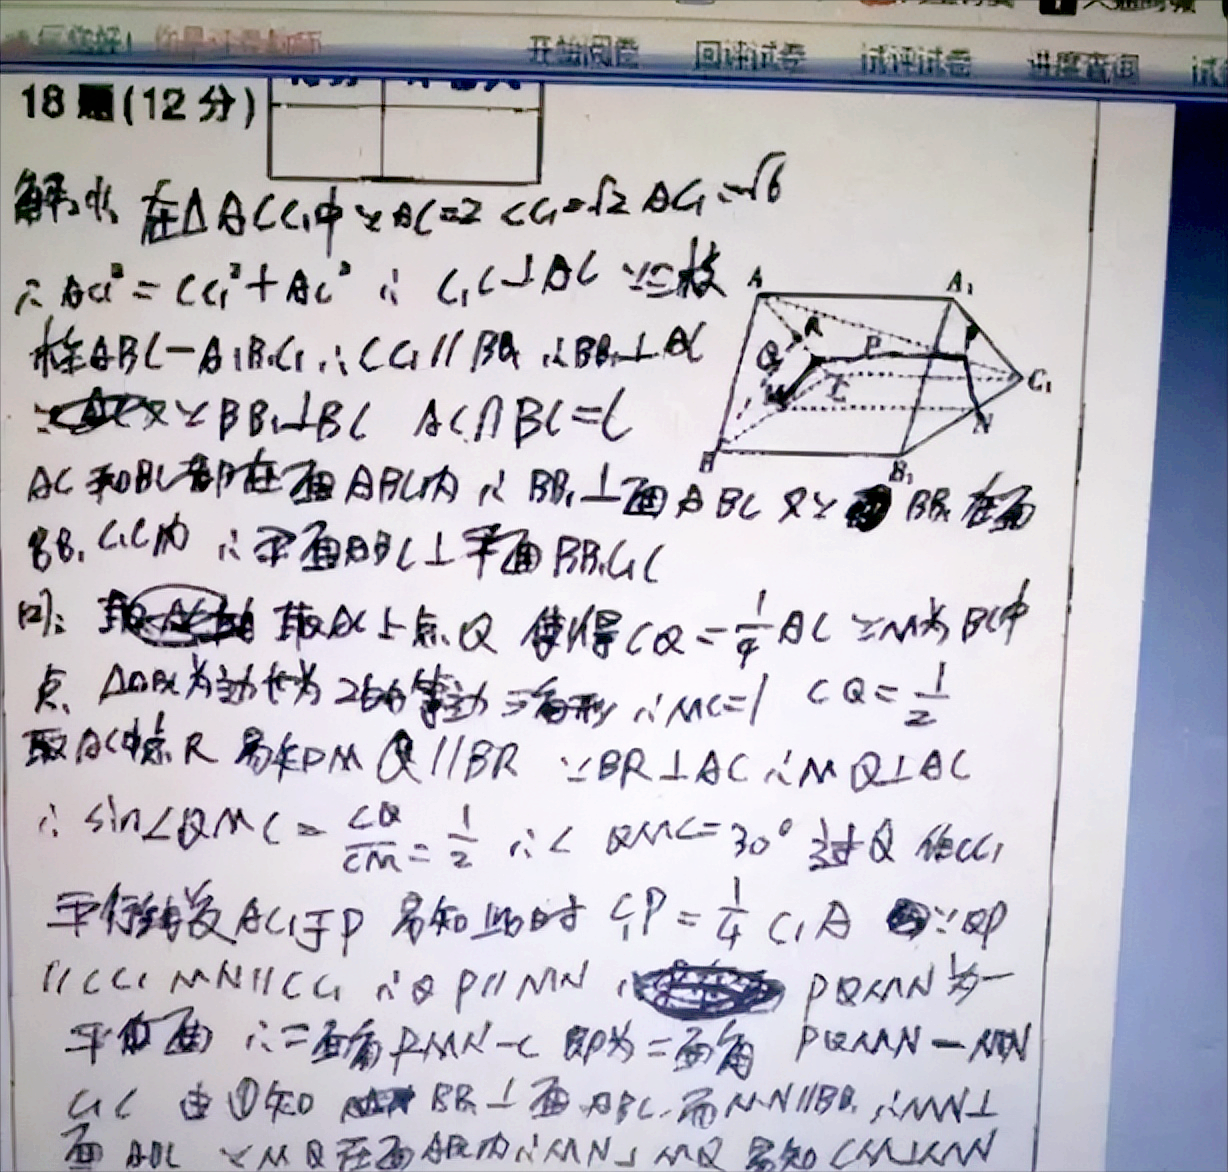 开始阅卷 回评试卷 试评试卷 进度查询
18题(12分)
解: 在△ACC₁中∵AC=2 CC₁=√2 AC₁=√6
∴AC₁²=CC₁²+AC² ∴ C₁C⊥AC ∵三棱
柱ABC-A₁B₁C₁∴CC₁//BB₁∴BB₁⊥AC
∵BB₁⊥BC AC∩BC=C
AC和BC都在面ABC内∴BB₁⊥面ABC又∵BB₁在面
BB₁C₁C内 ∴平面ABC⊥平面BB₁C₁C
取AC上点Q 使得CQ=1/4AC ∵M为BC中
点、△ABC为边长为2的等边三角形∴MC=1 CQ=1/2
取AC中点R 易知MQ//BR ∵BR⊥AC∴MQ⊥AC
∴sin∠QMC=CQ/CM=1/2 ∴∠QMC=30° 过Q作CC₁
平行线交AC₁于P 易知此时C₁P=1/4C₁A ∵QP
//CC₁ MN//CC₁ ∴QP//MN PQMN为一
平面 ∴二面角PMN-C即为二面角PQMN-MN
C₁C 由①知 BB₁⊥面ABC.而MN//BB₁∴MN⊥
面ABC ∵MQ在面ABC内∴MN⊥MQ 易知CM⊥MN
A A₁
R
Q P
C C₁
M N
B B₁